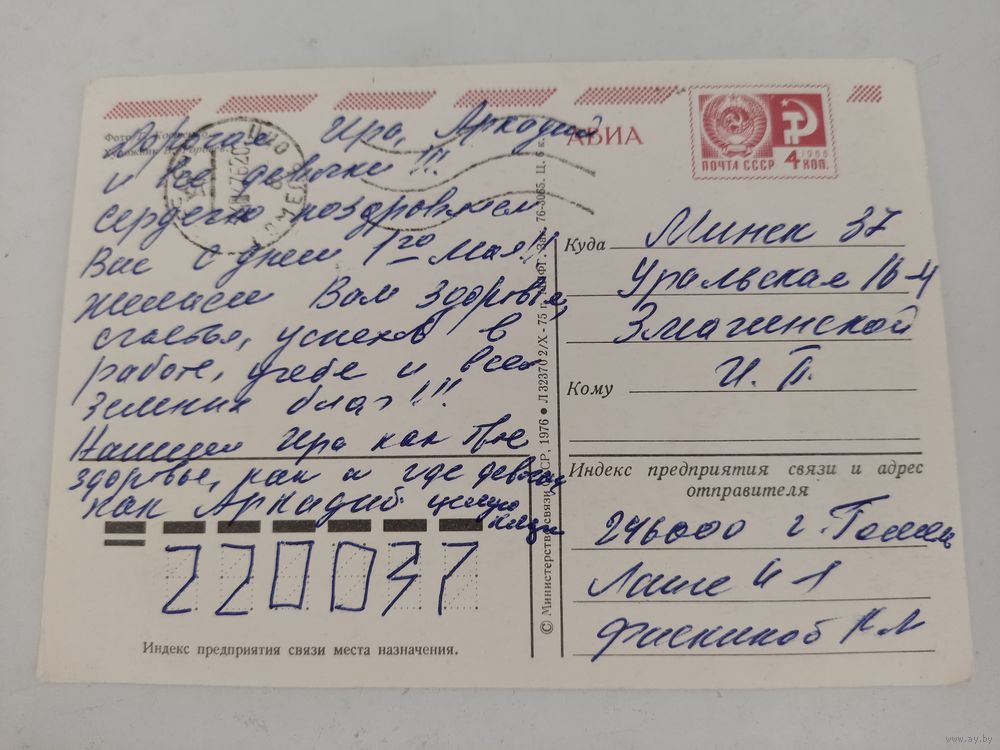 АВИА
ПОЧТА СССР
1966
4 КОП.
Дорогая Ира, Аркадий
и все девочки!!!
сердечно поздравляем
Вас с днем 1го мая!!
желаем Вам здоровья,
счастья, успехов в
работе, учебе и всех
земных благ!!!
Напиши Ира как твое
здоровье, как и где девочки
как Аркадий. целую
Куда Минск 37
Уральская 16-4
Змагинской
Кому И. П.
Индекс предприятия связи и адрес
отправителя
246000 г. Гомель
220037
Индекс предприятия связи места назначения.
© Министерство связи СССР, 1976 • Л 32370 2/X - 75 г.
www.ay.by